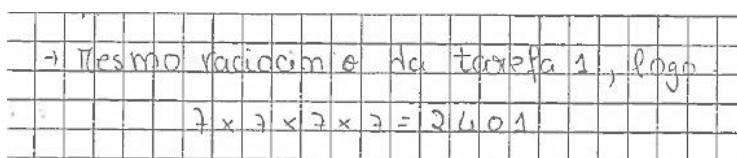 → Mesmo raciocínio da tarefa 1, logo
7 x 7 x 7 x 7 = 2401